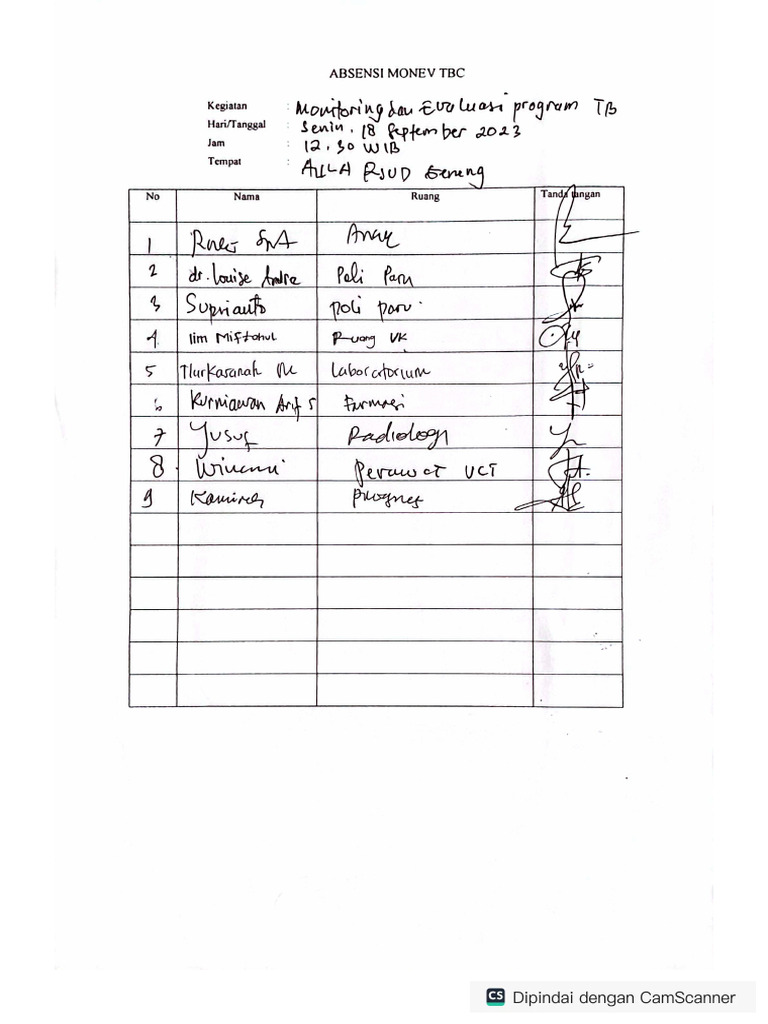 ABSENSI MONEV TBC
Kegiatan : Monitoring dan Evaluasi program TB
Hari/Tanggal : Senin, 18 September 2023
Jam : 12.30 WIB
Tempat : AULA RSUD Geneng
No Nama Ruang Tanda tangan
1 SpA Anak
2 dr. Louise Andra Poli Paru
3 Suprianto poli paru
4 Iim Miftahul Ruang VK
5 Nurkasanah Laboratorium
6 Kurniawan Arif S Farmasi
7 Yusuf Radiologi
8 Winarni Perawat VCT
9
CS Dipindai dengan CamScanner